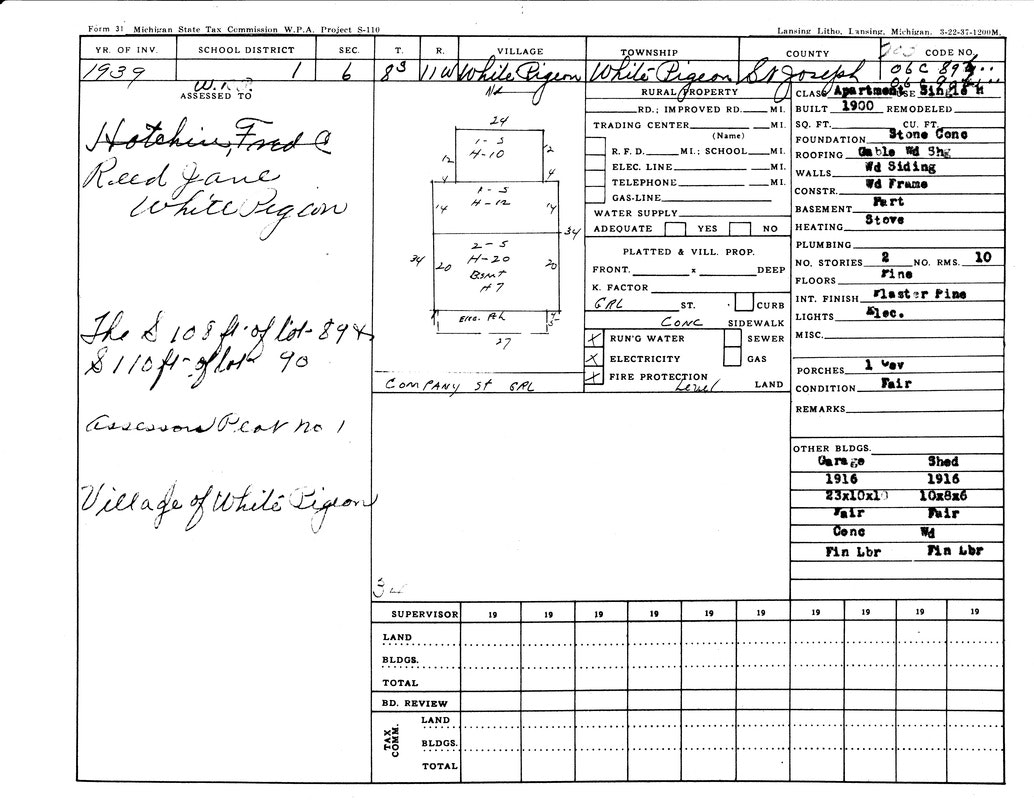 Form 31 Michigan State Tax Commission W.P.A. Project S-110
Lansing Litho, Lansing, Michigan. 3-22-37-1200M.
YR. OF INV. SCHOOL DISTRICT SEC. T. R. VILLAGE TOWNSHIP COUNTY CODE NO.
1939 1 6 8S 11W White Pigeon White Pigeon St Joseph 06C
ASSESSED TO
Hotchin, Fred C
Reed Jane
White Pigeon
The S 108 ft of lot 89 &
S 110 ft of lot 90
Assessors Plat no 1
Village of White Pigeon
24
1-S
H-10
12
12
4
4
1-S
H-12
14
14
34
2-S
H-20
Bsmt
H7
34
20
20
Enc. Ph
27
COMPANY St GRL
RURAL PROPERTY
RD.; IMPROVED RD. MI.
TRADING CENTER MI.
(Name)
R. F. D. MI.; SCHOOL MI.
ELEC. LINE MI.
TELEPHONE MI.
GAS-LINE
WATER SUPPLY
ADEQUATE YES NO
PLATTED & VILL. PROP.
FRONT. x DEEP
K. FACTOR
GRL ST. CURB
CONC SIDEWALK
X RUN'G WATER SEWER
X ELECTRICITY GAS
X FIRE PROTECTION
Level LAND
CLASS Apartment USE Single H
BUILT 1900 REMODELED
SQ. FT. CU. FT.
FOUNDATION Stone Conc
ROOFING Gable Wd Shg
WALLS Wd Siding
CONSTR. Wd Frame
BASEMENT Part
HEATING Stove
PLUMBING
NO. STORIES 2 NO. RMS. 10
FLOORS Pine
INT. FINISH Plaster Pine
LIGHTS Elec.
MISC.
PORCHES 1 Cov
CONDITION Fair
REMARKS
OTHER BLDGS.
Garage Shed
1916 1916
23x10x10 10x8x6
Fair Fair
Conc Wd
Fin Lbr Fin Lbr
SUPERVISOR 19 19 19 19 19 19 19 19 19 19
LAND
BLDGS.
TOTAL
BD. REVIEW
TAX COMM.
LAND
BLDGS.
TOTAL